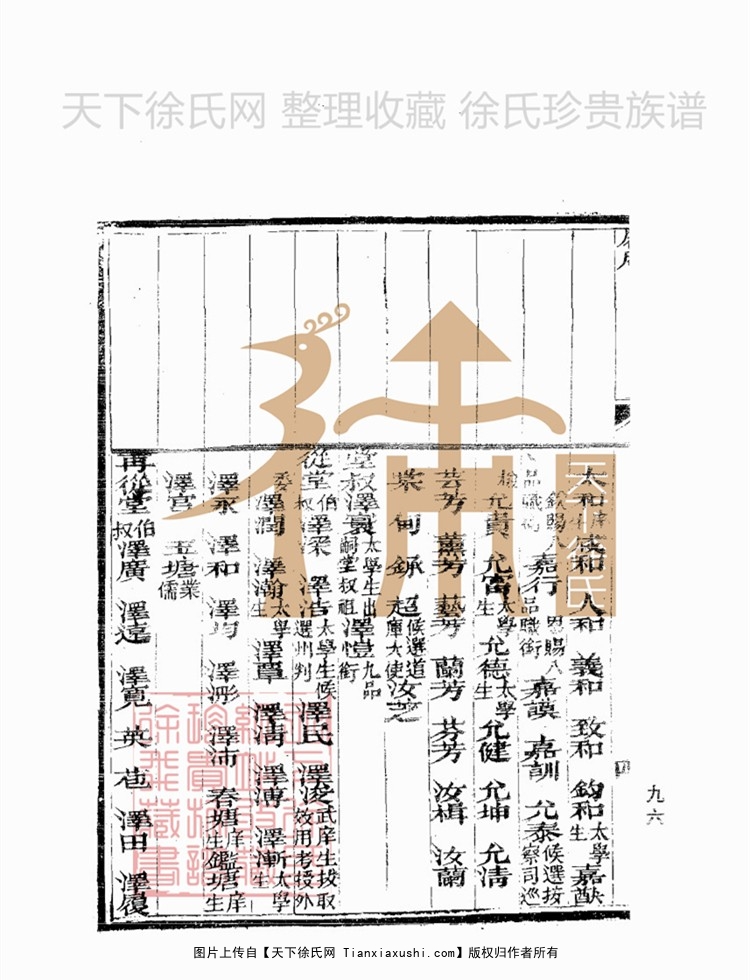 天下徐氏网 整理收藏 徐氏珍贵族谱
太和 咸和 人和 義和 致和 鈞和太學生 嘉猷
欽賜八品職銜 嘉行恩賜八品職銜 嘉謨 嘉訓 允泰候選按察司巡
檢 允貴 允富太學生 允德太學生 允健 允坤 允清
芸芳 薰芳 藝芳 蘭芳 芬芳 汝楫 汝蘭
超候選道庫大使 汝芝
堂叔澤寰太學生出嗣堂叔祖 澤愷九品銜
從堂伯叔澤梁 澤占太學生候選州判 澤民 澤浚武庠生拔取效用考授外
委 澤潤 澤瀚太學生 澤覃 澤清 澤溥 澤漸太學生
澤永 澤和 澤均 澤沛 春塘庠生 鑑塘庠生
澤宮 玉塘業儒
再從堂伯叔澤廣 澤遠 澤寬 英也 澤田 澤履
九六
天下徐氏
图片上传自【天下徐氏网 Tianxiaxushi.com】版权归作者所有